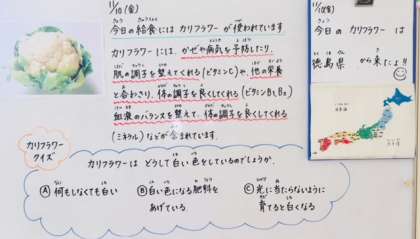 11/10(金)
今日の給食にはカリフラワーが使われています
カリフラワーには、かぜや病気を予防したり、
肌の調子を整えてくれる(ビタミンC)や、他の栄養
と合わさり、体の調子を良くしてくれる(ビタミンB1,B2)
血液のバランスを整えて、体の調子を良くしてくれる
(ミネラル)などが含まれています。
カリフラワー
クイズ
カリフラワーはどうして白い色をしているのでしょうか。
Ⓐ何もしなくても白い
Ⓑ白い色になる肥料を
あげている
Ⓒ光に当たらないように
育てると白くなる
11/10(金)
今日のカリフラワーは
徳島県から来たよ!!